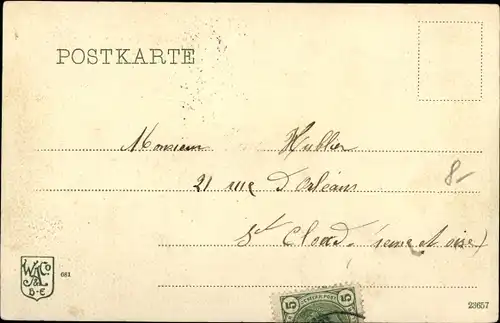 POSTKARTE
Monsieur Hublier
21 rue d'Orléans
8-
St Cloud. (Seine et Oise)
W & A Co
B-E
681
5 5
23657